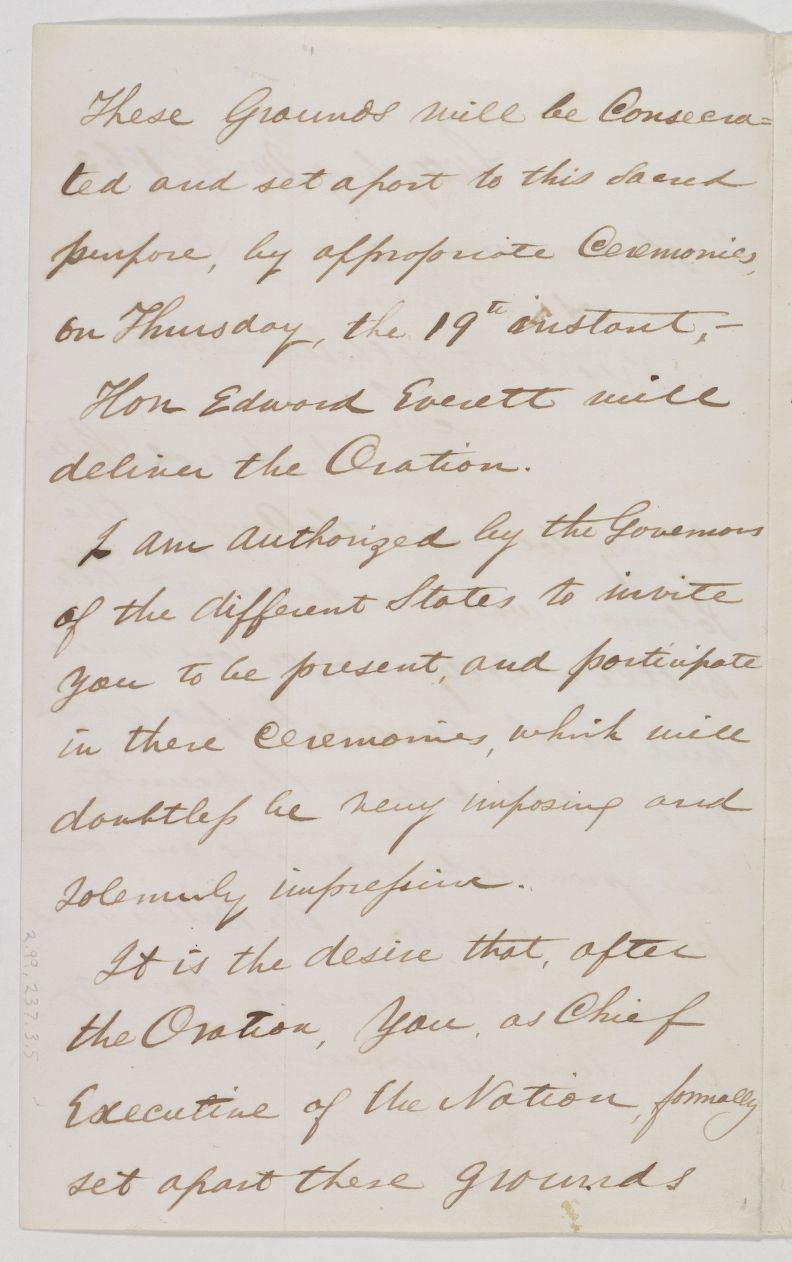 These Grounds will be Consecra=
ted and set apart to this Sacred
purpose, by appropriate Ceremonies,
on Thursday, the 19th instant,–
Hon Edward Everett will
deliver the Oration.
I am authorized by the Governors
of the different States to invite
You to be present, and participate
in these Ceremonies, which will
doubtless be very imposing and
solemnly impressive.
It is the desire that, after
the Oration, You, as Chief
Executive of the Nation, formally
set apart these grounds
2.99.237.3.5